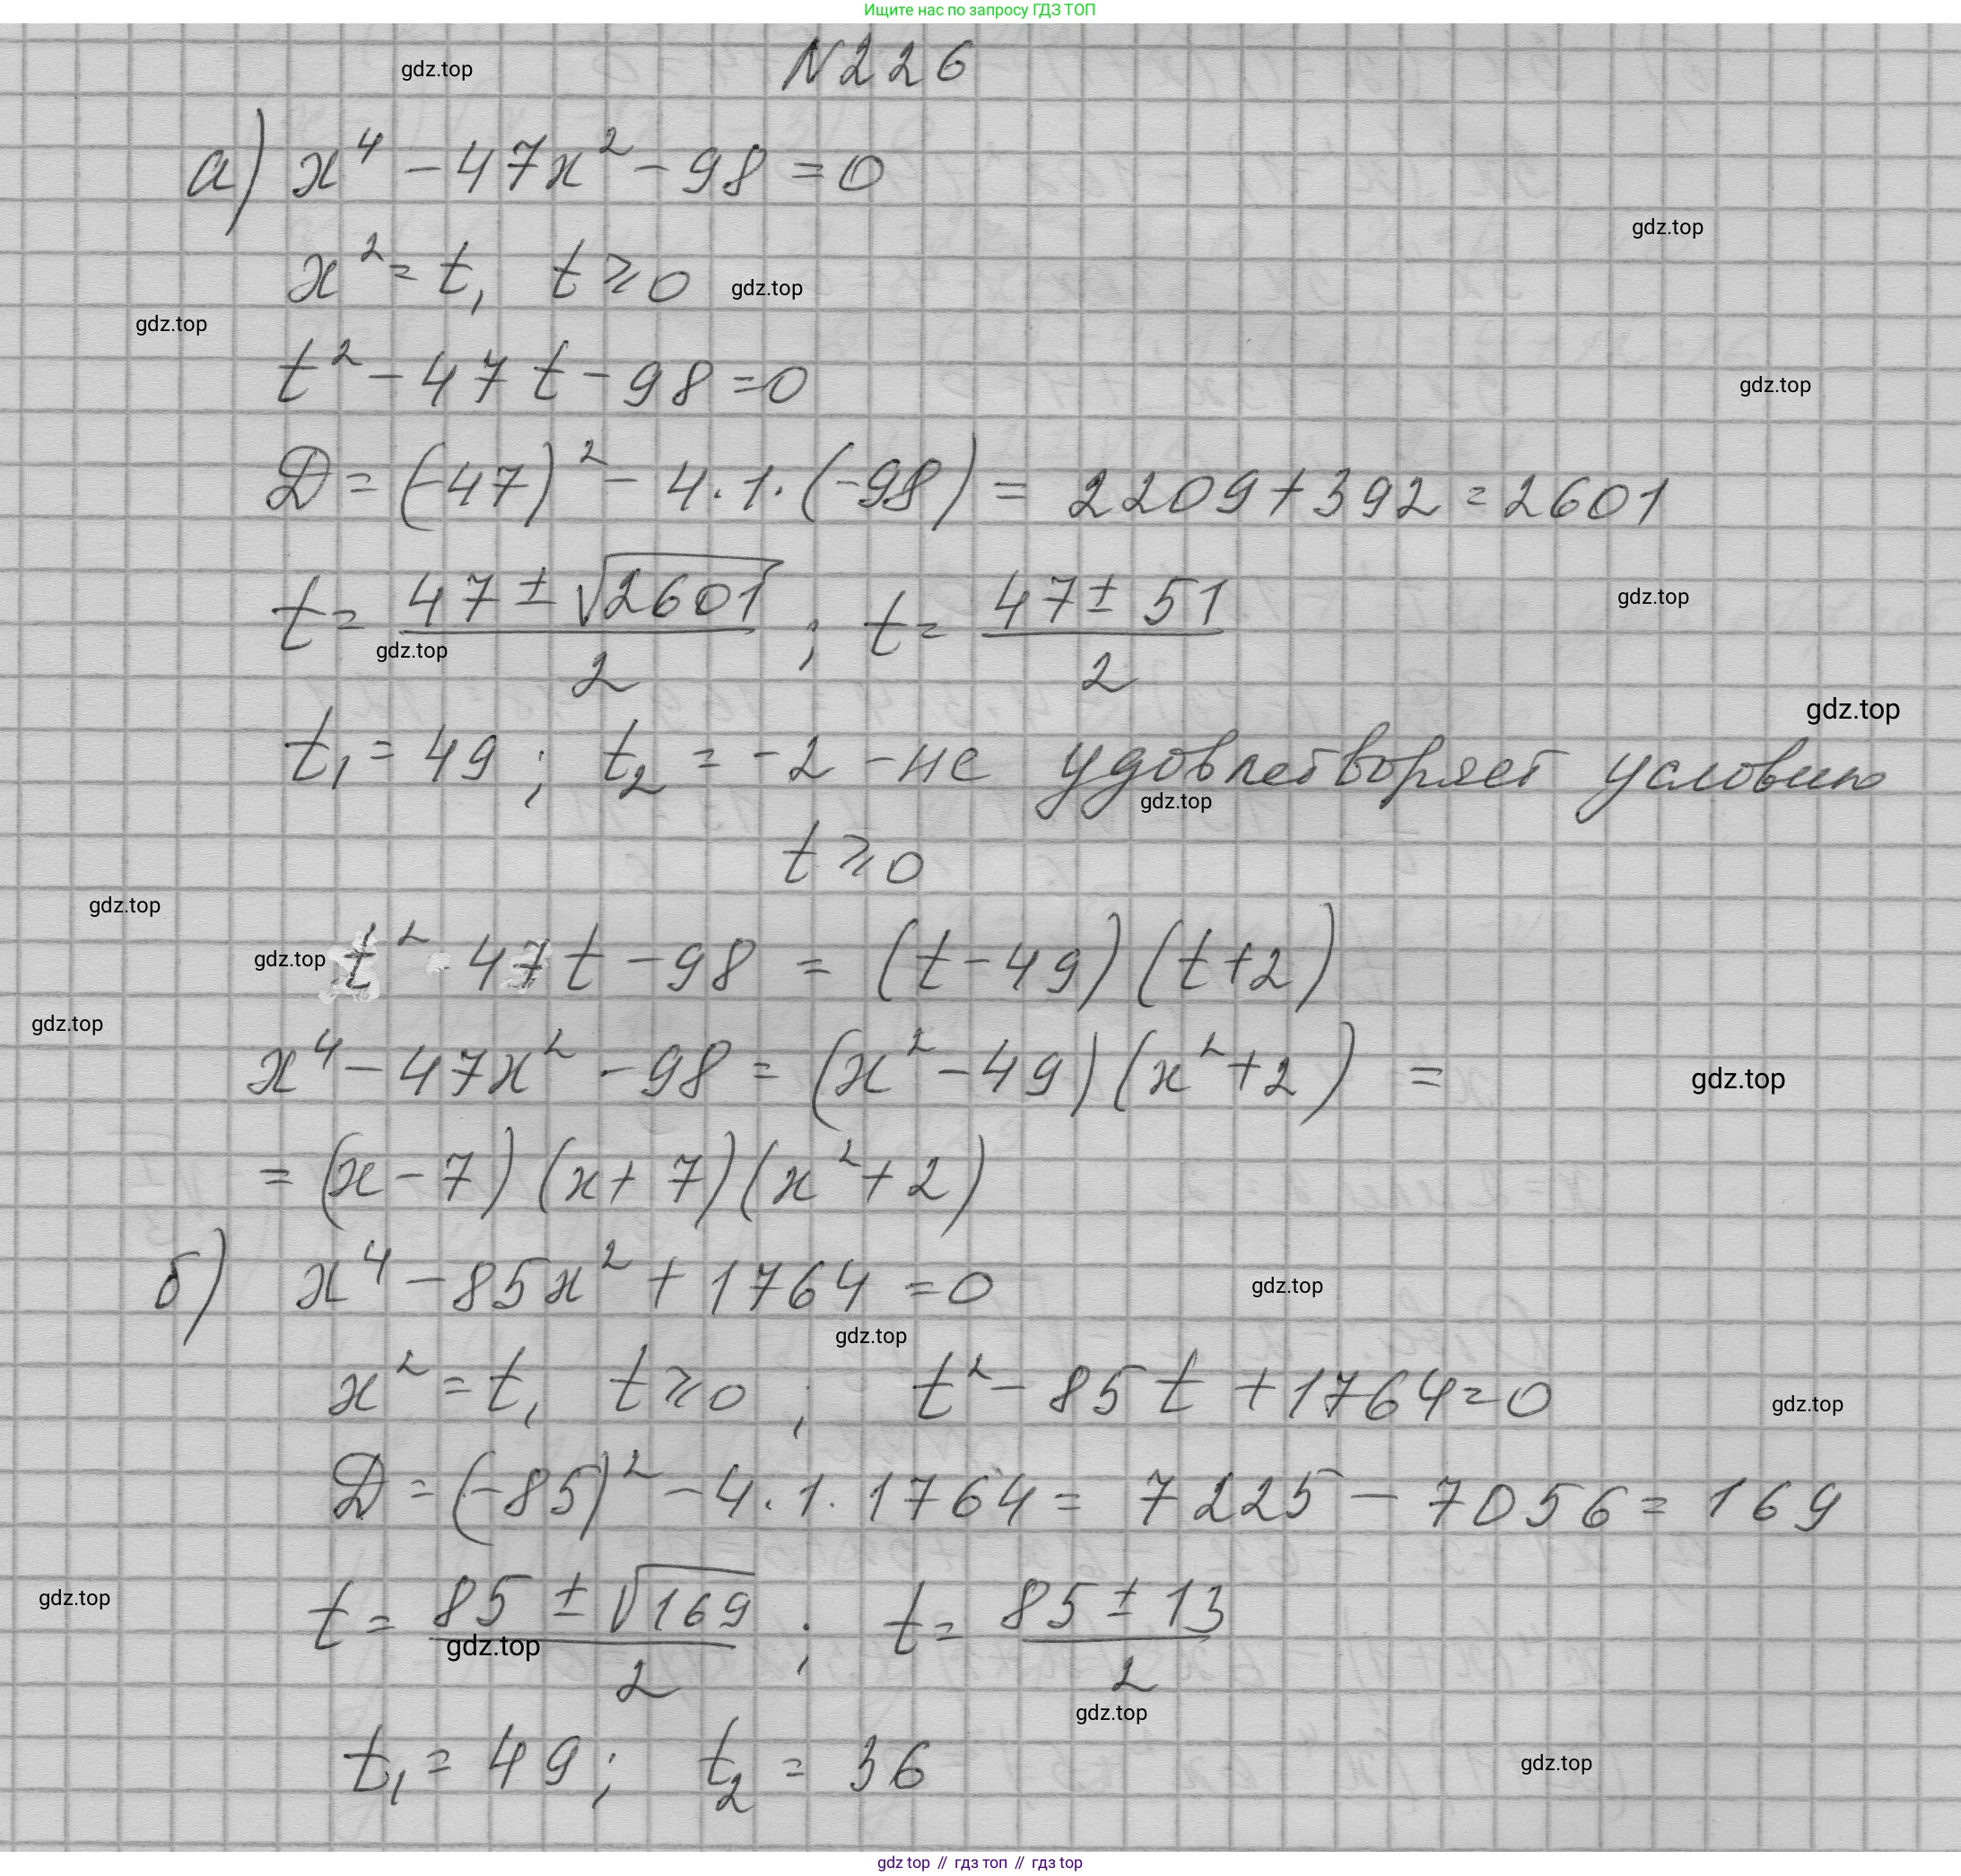 Ищите нас по запросу ГДЗ ТОП
N226
gdz.top
а) x⁴ - 47x² - 98 = 0
gdz.top
x² = t, t ⩾ 0
gdz.top
gdz.top
t² - 47t - 98 = 0
gdz.top
D = (-47)² - 4·1·(-98) = 2209 + 392 = 2601
t = (47 ± √2601)/2 ; t = (47 ± 51)/2
gdz.top
gdz.top
gdz.top
t₁ = 49 ; t₂ = -2 - не удовлетворяет условию
gdz.top
t ⩾ 0
gdz.top
gdz.top
t² - 47t - 98 = (t - 49)(t + 2)
gdz.top
x⁴ - 47x² - 98 = (x² - 49)(x² + 2) =
gdz.top
= (x - 7)(x + 7)(x² + 2)
б) x⁴ - 85x² + 1764 = 0
gdz.top
gdz.top
x² = t, t ⩾ 0 ; t² - 85t + 1764 = 0
gdz.top
D = (-85)² - 4·1·1764 = 7225 - 7056 = 169
gdz.top
t = (85 ± √169)/2 ; t = (85 ± 13)/2
gdz.top
gdz.top
t₁ = 49 ; t₂ = 36
gdz.top
gdz top // гдз топ // гдз top